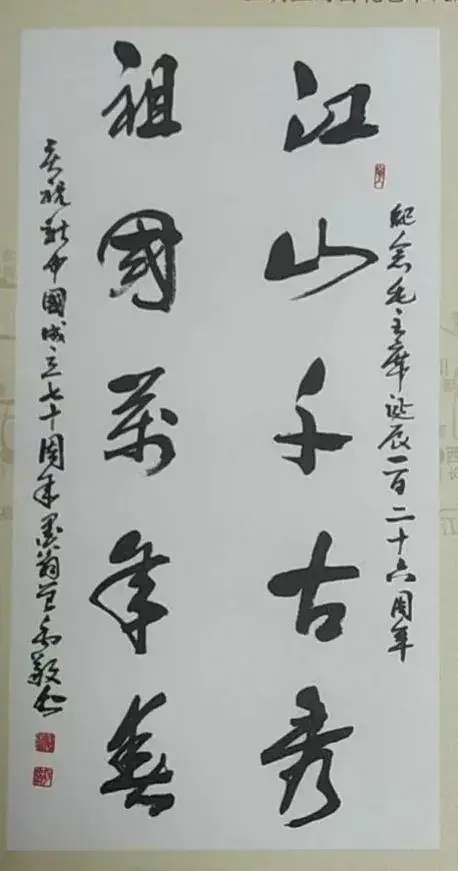 纪念毛主席诞辰一百二十六周年
江山千古秀
祖國萬年春
庆祝新中國成立七十周年墨翁
敬书